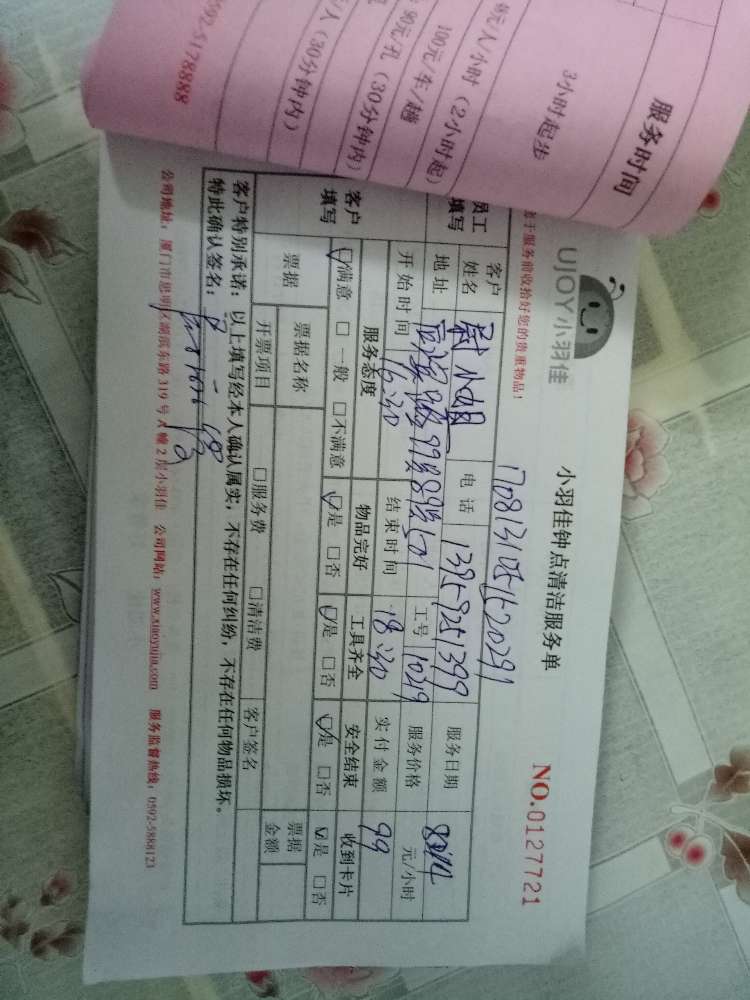 服务时间
3小时起步
元/人/小时（2小时起）
100元/车/趟
90元/孔（30分钟内）
/人（30分钟内）
0592-5178888
UJOY小羽佳
小羽佳钟点清洁服务单
NO.0127721
于服务前收拾好您的贵重物品！
员工填写
客户姓名
小姐
电话
服务日期
地址
工号 1029
服务价格
元/小时
开始时间 16:30
结束时间 18:30
实付金额 99
客户填写
服务态度
物品完好
工具齐全
安全结束
收到卡片
☑满意 □一般 □不满意
☑是 □否
☑是 □否
☑是 □否
☑是 □否
票据
票据名称
票据金额
开票项目
□服务费 □清洁费
客户签名
客户特别承诺：以上填写经本人确认属实，不存在任何纠纷，不存在任何物品损坏。
特此确认签名：
公司地址：厦门市思明区湖滨东路 319 号 A 幢 2 层小羽佳 公司网站：www.xiaoyujia.com 服务监督热线：0592-5888123